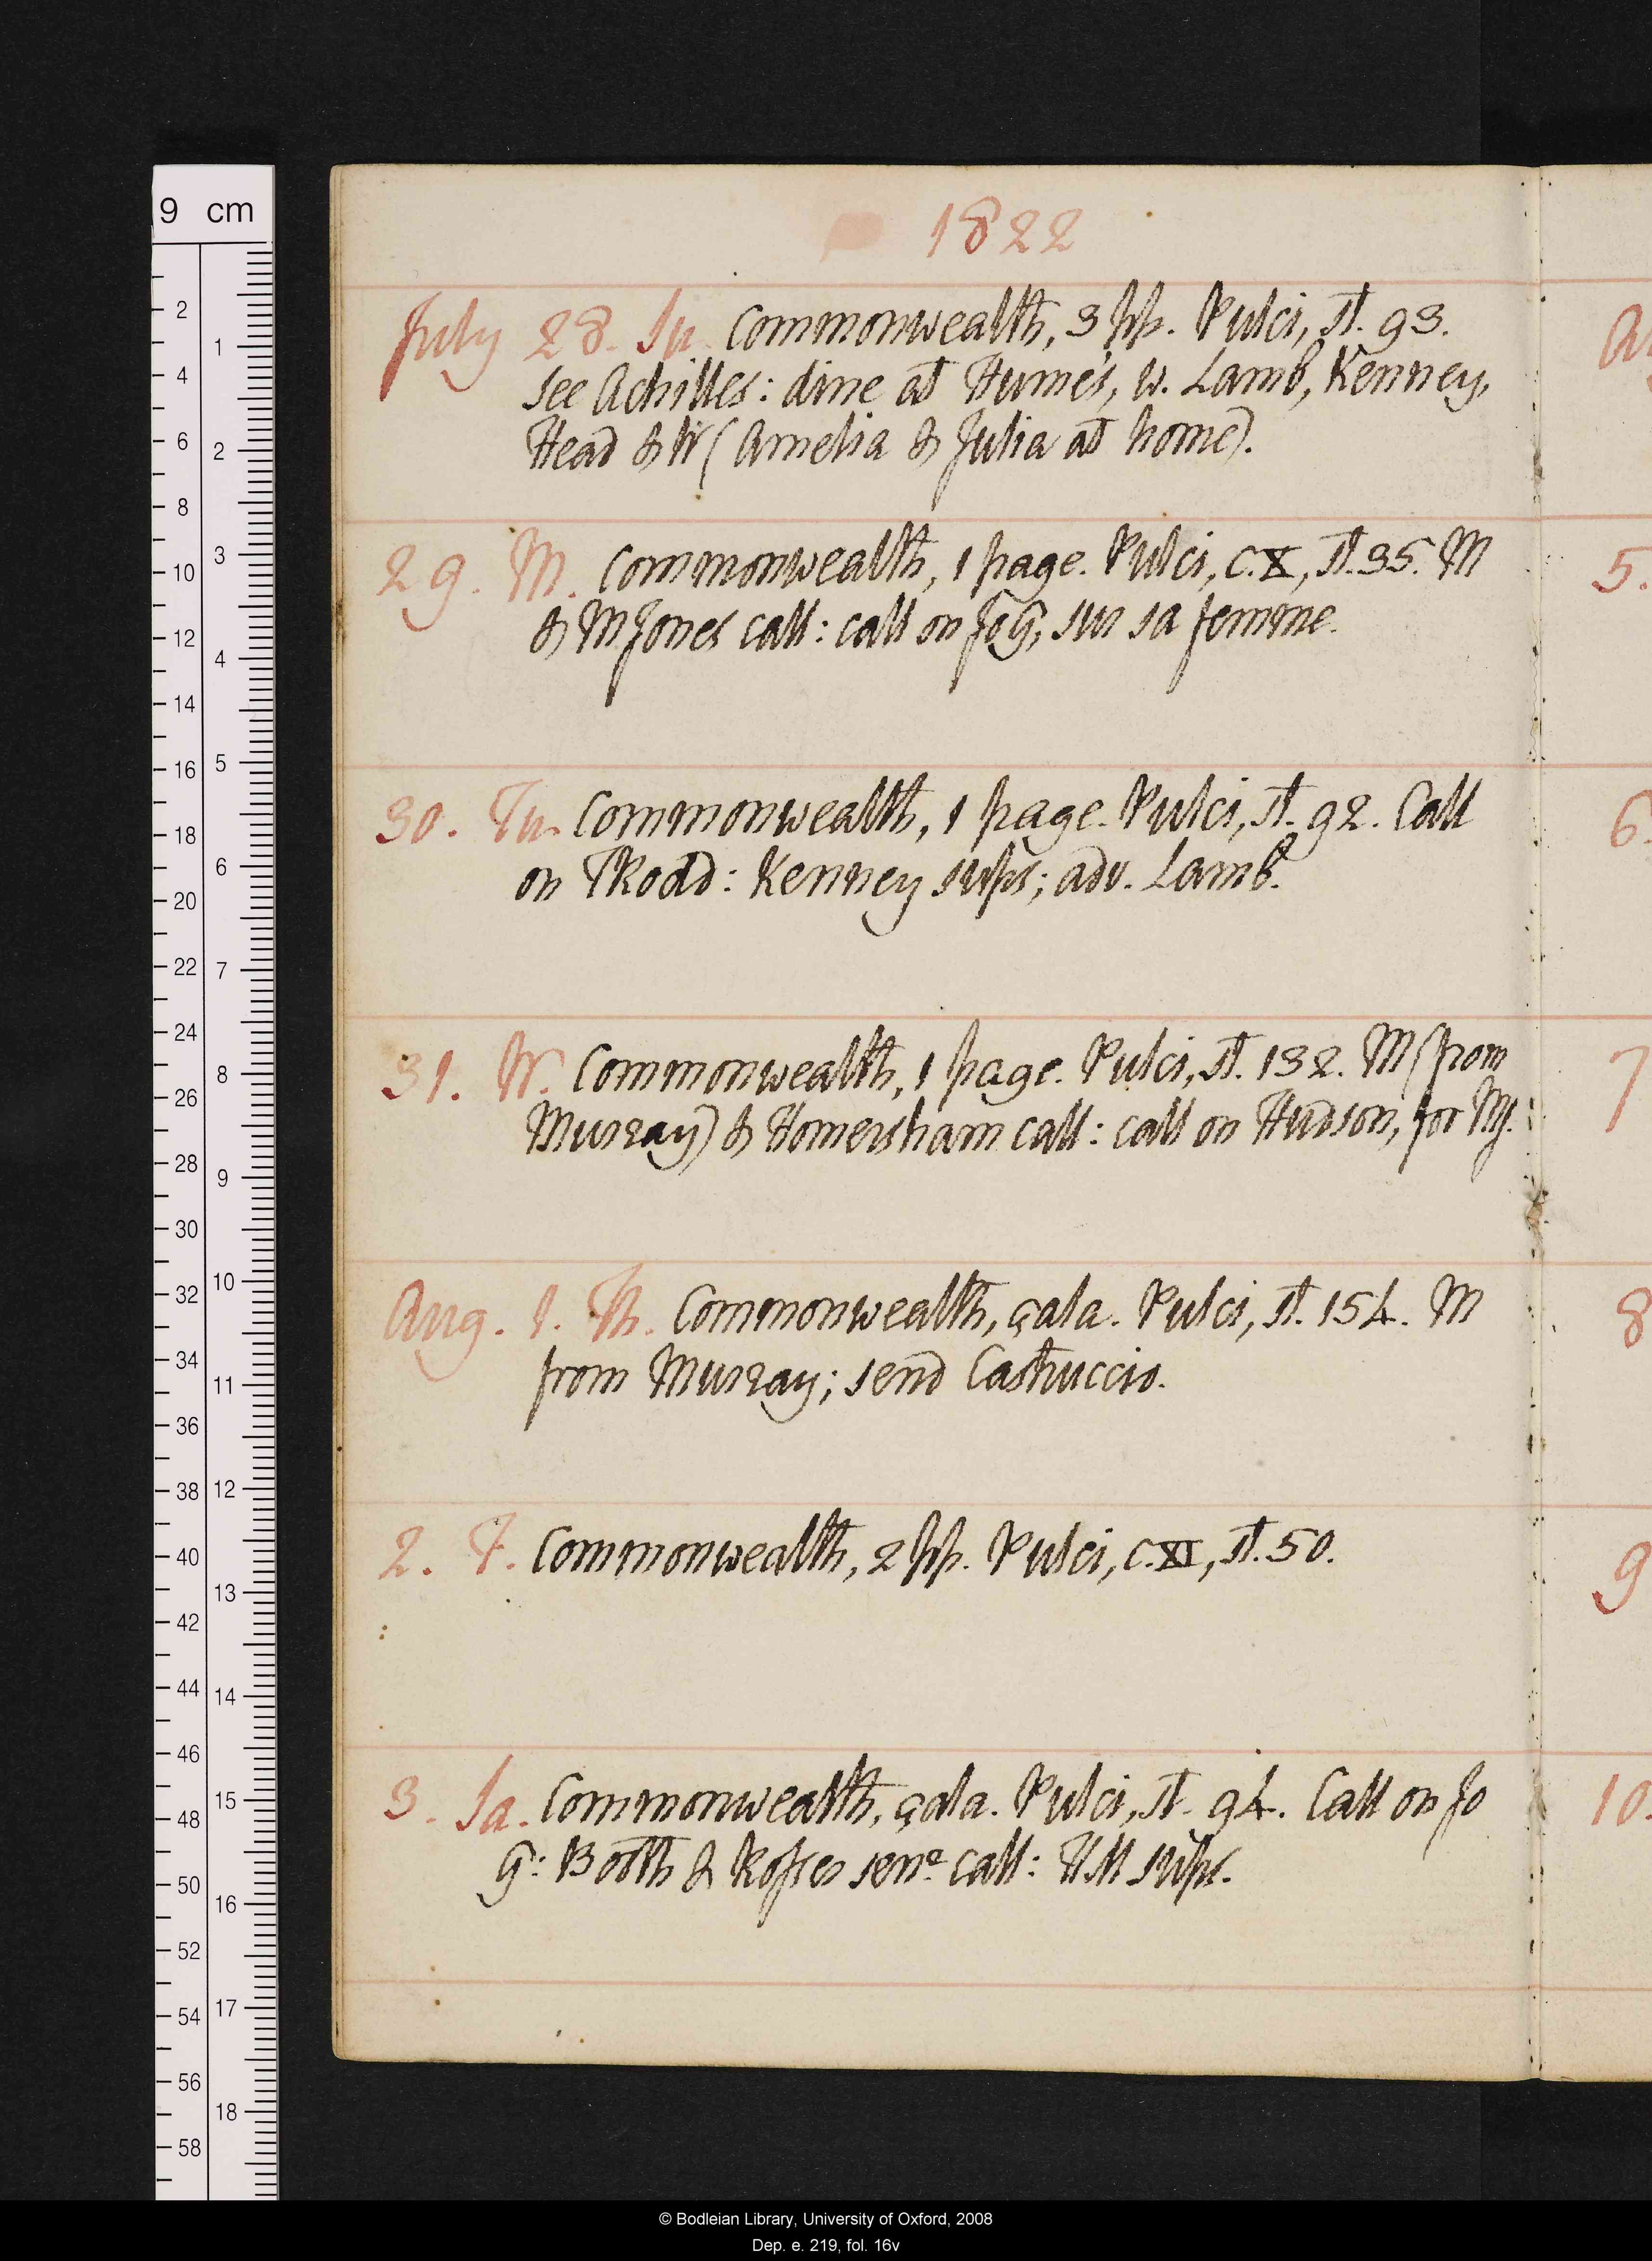 1822
July 28. Su. Commonwealth, 3 pp. Pulci, st. 93.
See Achilles: dine at Hume's, w. Lamb, Kenney,
Head & W (Amelia & Julia at home).
29. M. Commonwealth, 1 page. Pulci, c. X, st. 35. M
& M Jones call: call on Jo G, sur sa femme.
30. Tu. Commonwealth, 1 page. Pulci, st. 92. Call
on T Rodd: Kenney sups; adv. Lamb.
31. W. Commonwealth, 1 page. Pulci, st. 132. M (from
Murray) & Homersham call: call on Hudson, for MJ.
Aug. 1. Th. Commonwealth, çala. Pulci, st. 154. M
from Murray; send Castruccio.
2. F. Commonwealth, 2 pp. Pulci, c. XI, st. 50.
3. Sa. Commonwealth, çala. Pulci, st. 94. Call on Jo
G: Booth & Rosser senr call: HM sups.
5.
6.
7
8
9
10.
9 cm
2
4
6
8
10
12
14
16
18
20
22
24
26
28
30
32
34
36
38
40
42
44
46
48
50
52
54
56
58
1
2
3
4
5
6
7
8
9
10
11
12
13
14
15
16
17
18
© Bodleian Library, University of Oxford, 2008
Dep. e. 219, fol. 16v